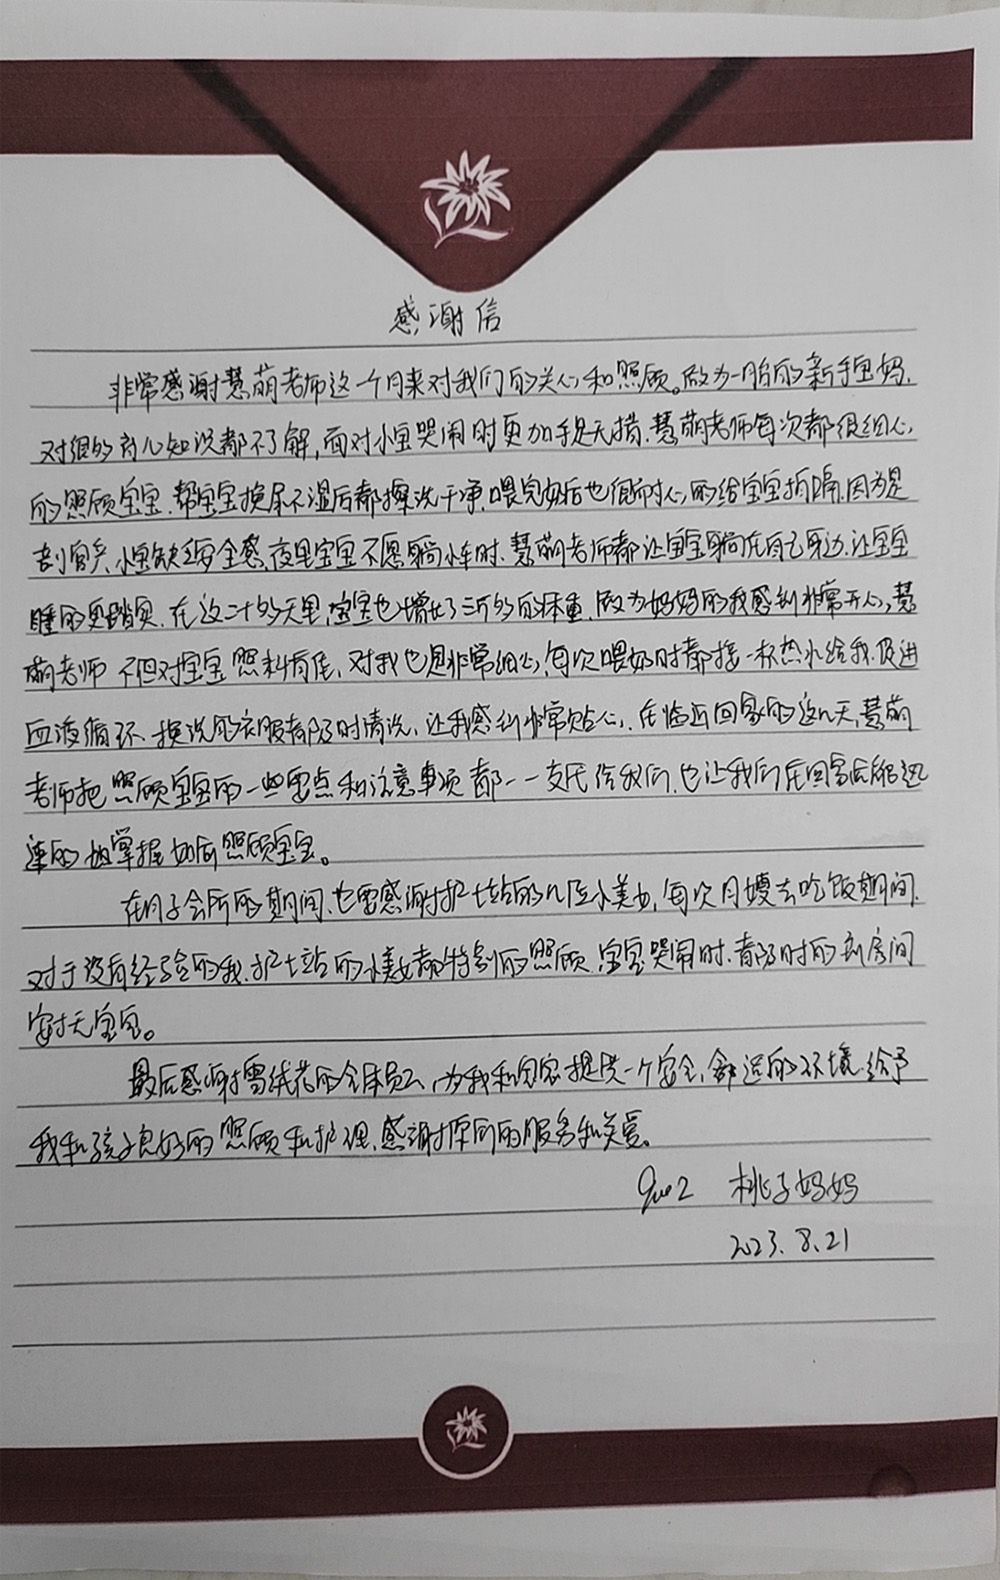 感谢信
非常感谢慧萌老师这一个月来对我们的关心和照顾。做为一胎的新手宝妈.
对很多育儿知识都不了解,面对小宝哭闹时更加手足无措.慧萌老师每次都很细心
的照顾宝宝.帮宝宝换尿不湿后都擦洗干净.喂完奶后也很耐心的给宝宝拍嗝.因为是
剖宫产,小宝缺乏安全感,夜里宝宝不愿躺小车时.慧萌老师都让宝宝躺在自己身边.让宝宝
睡的更踏实.在这二十多天里,宝宝也增长了三斤多的体重.做为妈妈的我感到非常开心,慧
萌老师不但对宝宝照料有佳,对我也是非常细心,每次喂奶时都接一杯热水给我.促进
血液循环.换洗的衣服都及时清洗,让我感到非常贴心.在临近回家的这几天,慧萌
老师把照顾宝宝的一些要点和注意事项都一一交代给我们,也让我们在回家后能迅
速的掌握如何照顾宝宝。
在月子会所的期间.也要感谢护士站的几位小美女,每次月嫂去吃饭期间.
对于没有经验的我.护士站的小美女都特别的照顾.宝宝哭闹时.都及时的到房间
安抚宝宝。
最后感谢雪绒花的全体员工,为我和宝宝提供一个安全,舒适的环境.给予
我和孩子良好的照顾和护理.感谢你们的服务和关爱。
桃子妈妈
2023.8.21